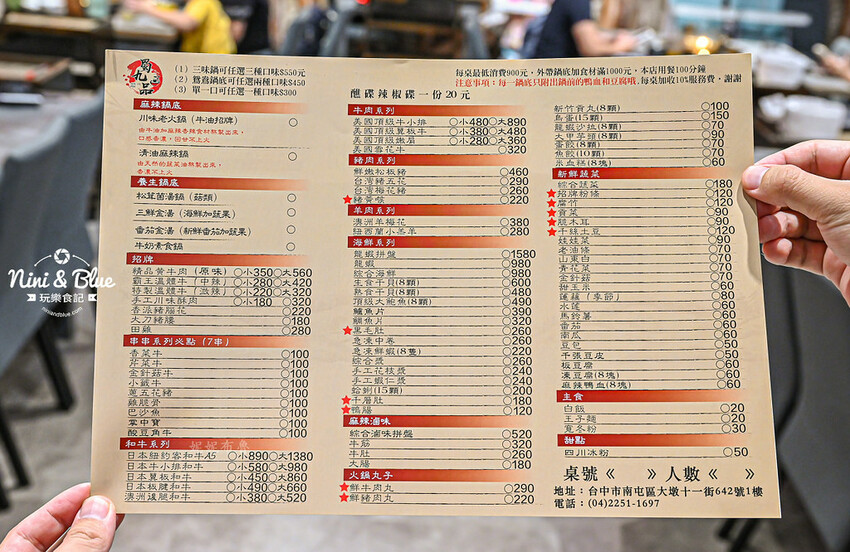 蜀九品
(1) 三味鍋可任選三種口味$550元
(2) 鴛鴦鍋底可任選兩種口味$450
(3) 單一口可任選一種口味$300
每桌最低消費900元，外帶鍋底加食材滿1000元，本店用餐100分鐘
注意事項：每一鍋底只附出鍋前的鴨血和豆腐哦，每桌加收10%服務費，謝謝
醮碟辣椒碟一份20元
麻辣鍋底
川味老火鍋（牛油招牌）
清油麻辣鍋
養生鍋底
松茸菌湯鍋（菇類）
三鮮金湯（海鮮加蔬果）
番茄金湯（新鮮番茄加蔬果）
牛奶素食鍋
招牌
精品黃牛肉（原味）○小350○大560
霸王溫體牛（中辣）○小280○大420
特製溫體牛（激辣）○小220○大320
手工川味酥肉 ○小180 ○320
香派豬腦花 ○220
大刀豬腰 ○180
田雞 ○280
串串系列必點（7串）
香菜牛 ○100
芹菜牛 ○100
金針菇牛 ○100
小鐵牛 ○100
蔥五花豬 ○100
雞脆骨 ○100
巴沙魚 ○100
掌中寶 ○100
酸豆角牛 ○100
和牛系列
日本紐約客和牛A5 ○小890○大1380
日本牛小排和牛 ○小580○大980
日本翼板和牛 ○小450○大860
日本板腱和牛 ○小490○大660
澳洲後腿和牛 ○小380○大520
牛肉系列
美國頂級牛小排 ○小480○大890
美國頂級翼板牛 ○小380○大480
美國頂級嫩肩 ○小280○大360
美國雪花牛 ○320
豬肉系列
鮮嫩松板豬 ○460
台灣豬五花 ○290
台灣梅花豬 ○260
豬黃喉 ○220
羊肉系列
澳洲羊梅花 ○380
紐西蘭小羔羊 ○280
海鮮系列
龍蝦拼盤 ○1580
龍蝦 ○980
綜合海鮮 ○980
生食干貝(8顆) ○600
熟食干貝(8顆) ○480
頂級大鮑魚(8顆) ○490
鱸魚片 ○390
鯛魚片 ○320
黑毛肚 ○260
急凍中卷 ○260
急凍鮮蝦(8隻) ○220
綜合漿 ○260
手工花枝漿 ○240
手工蝦仁漿 ○240
蛤蜊(15顆) ○200
千層肚 ○180
鴨腸 ○120
麻辣滷味
綜合滷味拼盤 ○520
牛筋 ○320
牛肚 ○210
大腸 ○180
火鍋丸子
鮮牛肉丸 ○290
鮮豬肉丸 ○220
新竹貢丸(8顆) ○100
鳥蛋(15顆) ○150
龍蝦沙拉(8顆) ○70
大甲芋頭(8顆) ○90
蛋餃(8顆) ○70
魚餃(10顆) ○70
米血糕(8塊) ○60
新鮮蔬菜
綜合蔬菜 ○180
招牌粉條 ○120
腐竹 ○90
貢菜 ○90
脆木耳 ○90
千絲土豆 ○120
娃娃菜 ○90
老油條 ○70
山東白 ○70
青花菜 ○70
金針菇 ○70
甜玉米 ○60
蓮藕（季節）○80
水蓮 ○60
馬鈴薯 ○60
番茄 ○60
南瓜 ○60
豆包 ○50
千張豆皮 ○50
板豆腐 ○60
凍豆腐(8塊) ○60
麻辣鴨血(8塊) ○60
主食
白飯 ○20
王子麵 ○20
寬冬粉 ○30
甜點
四川冰粉 ○50
桌號《　》人數《　》
地址：台中市南屯區大墩十一街642號1樓
電話：(04)2251-1697
Nini & Blue
玩樂食記
niniandblue.com